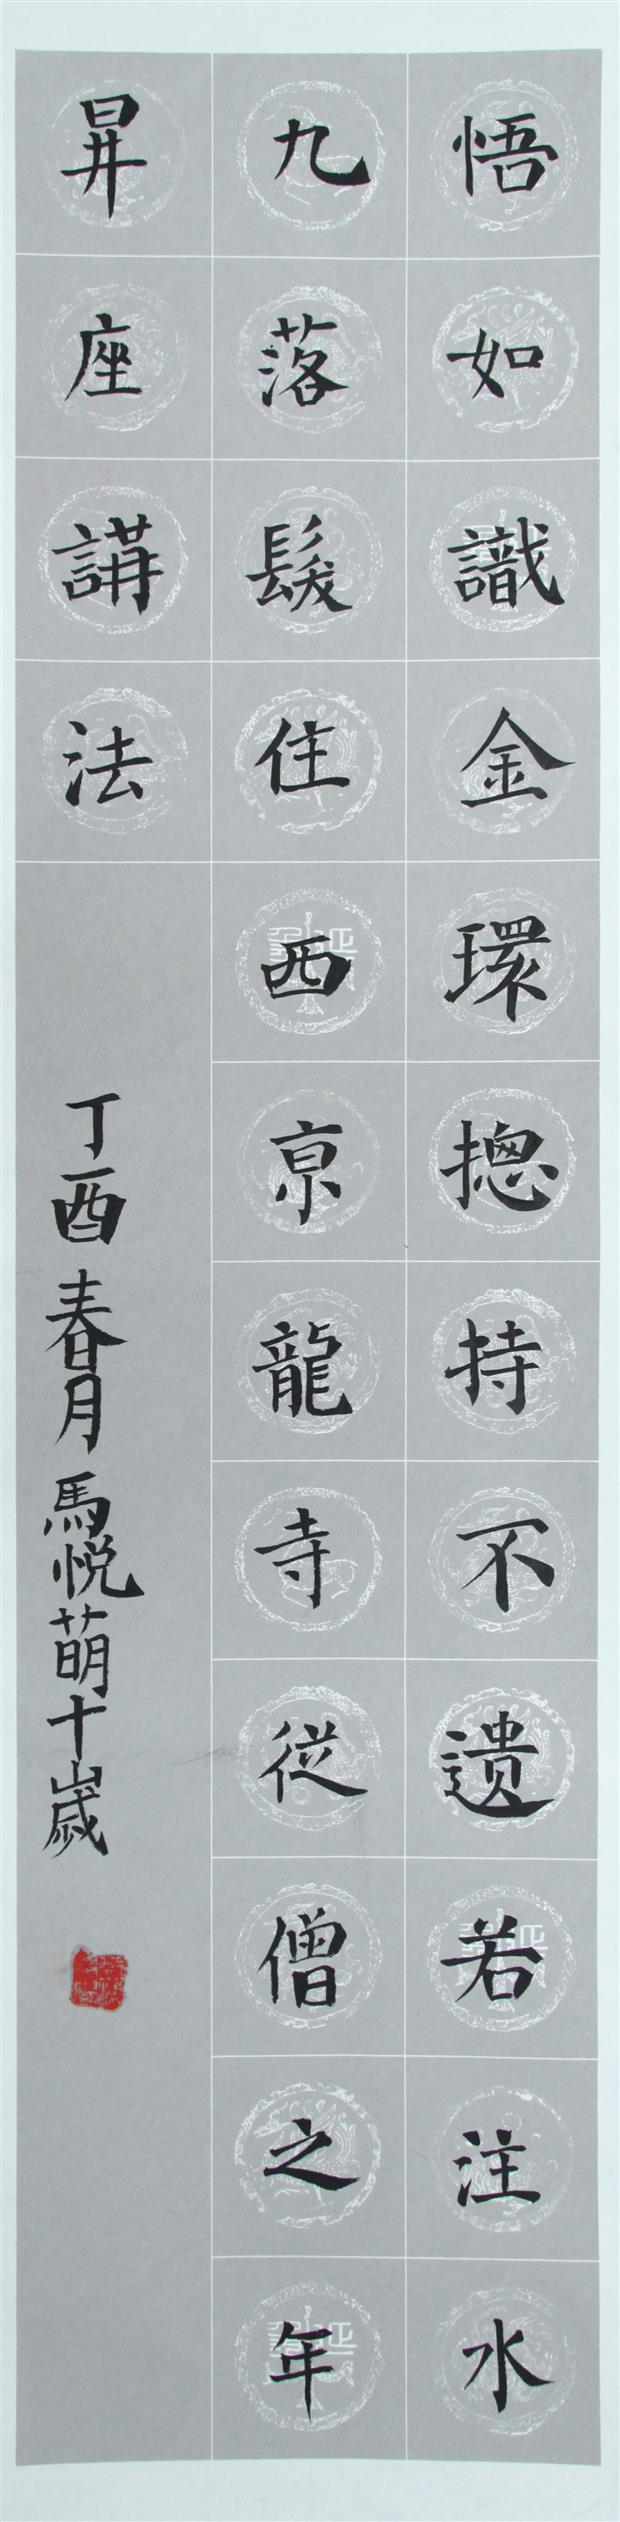 悟如識金環揔持不遺若注水
九落髮住西京龍寺從僧之年
昇座講法
丁酉春月馬悦萌十歲